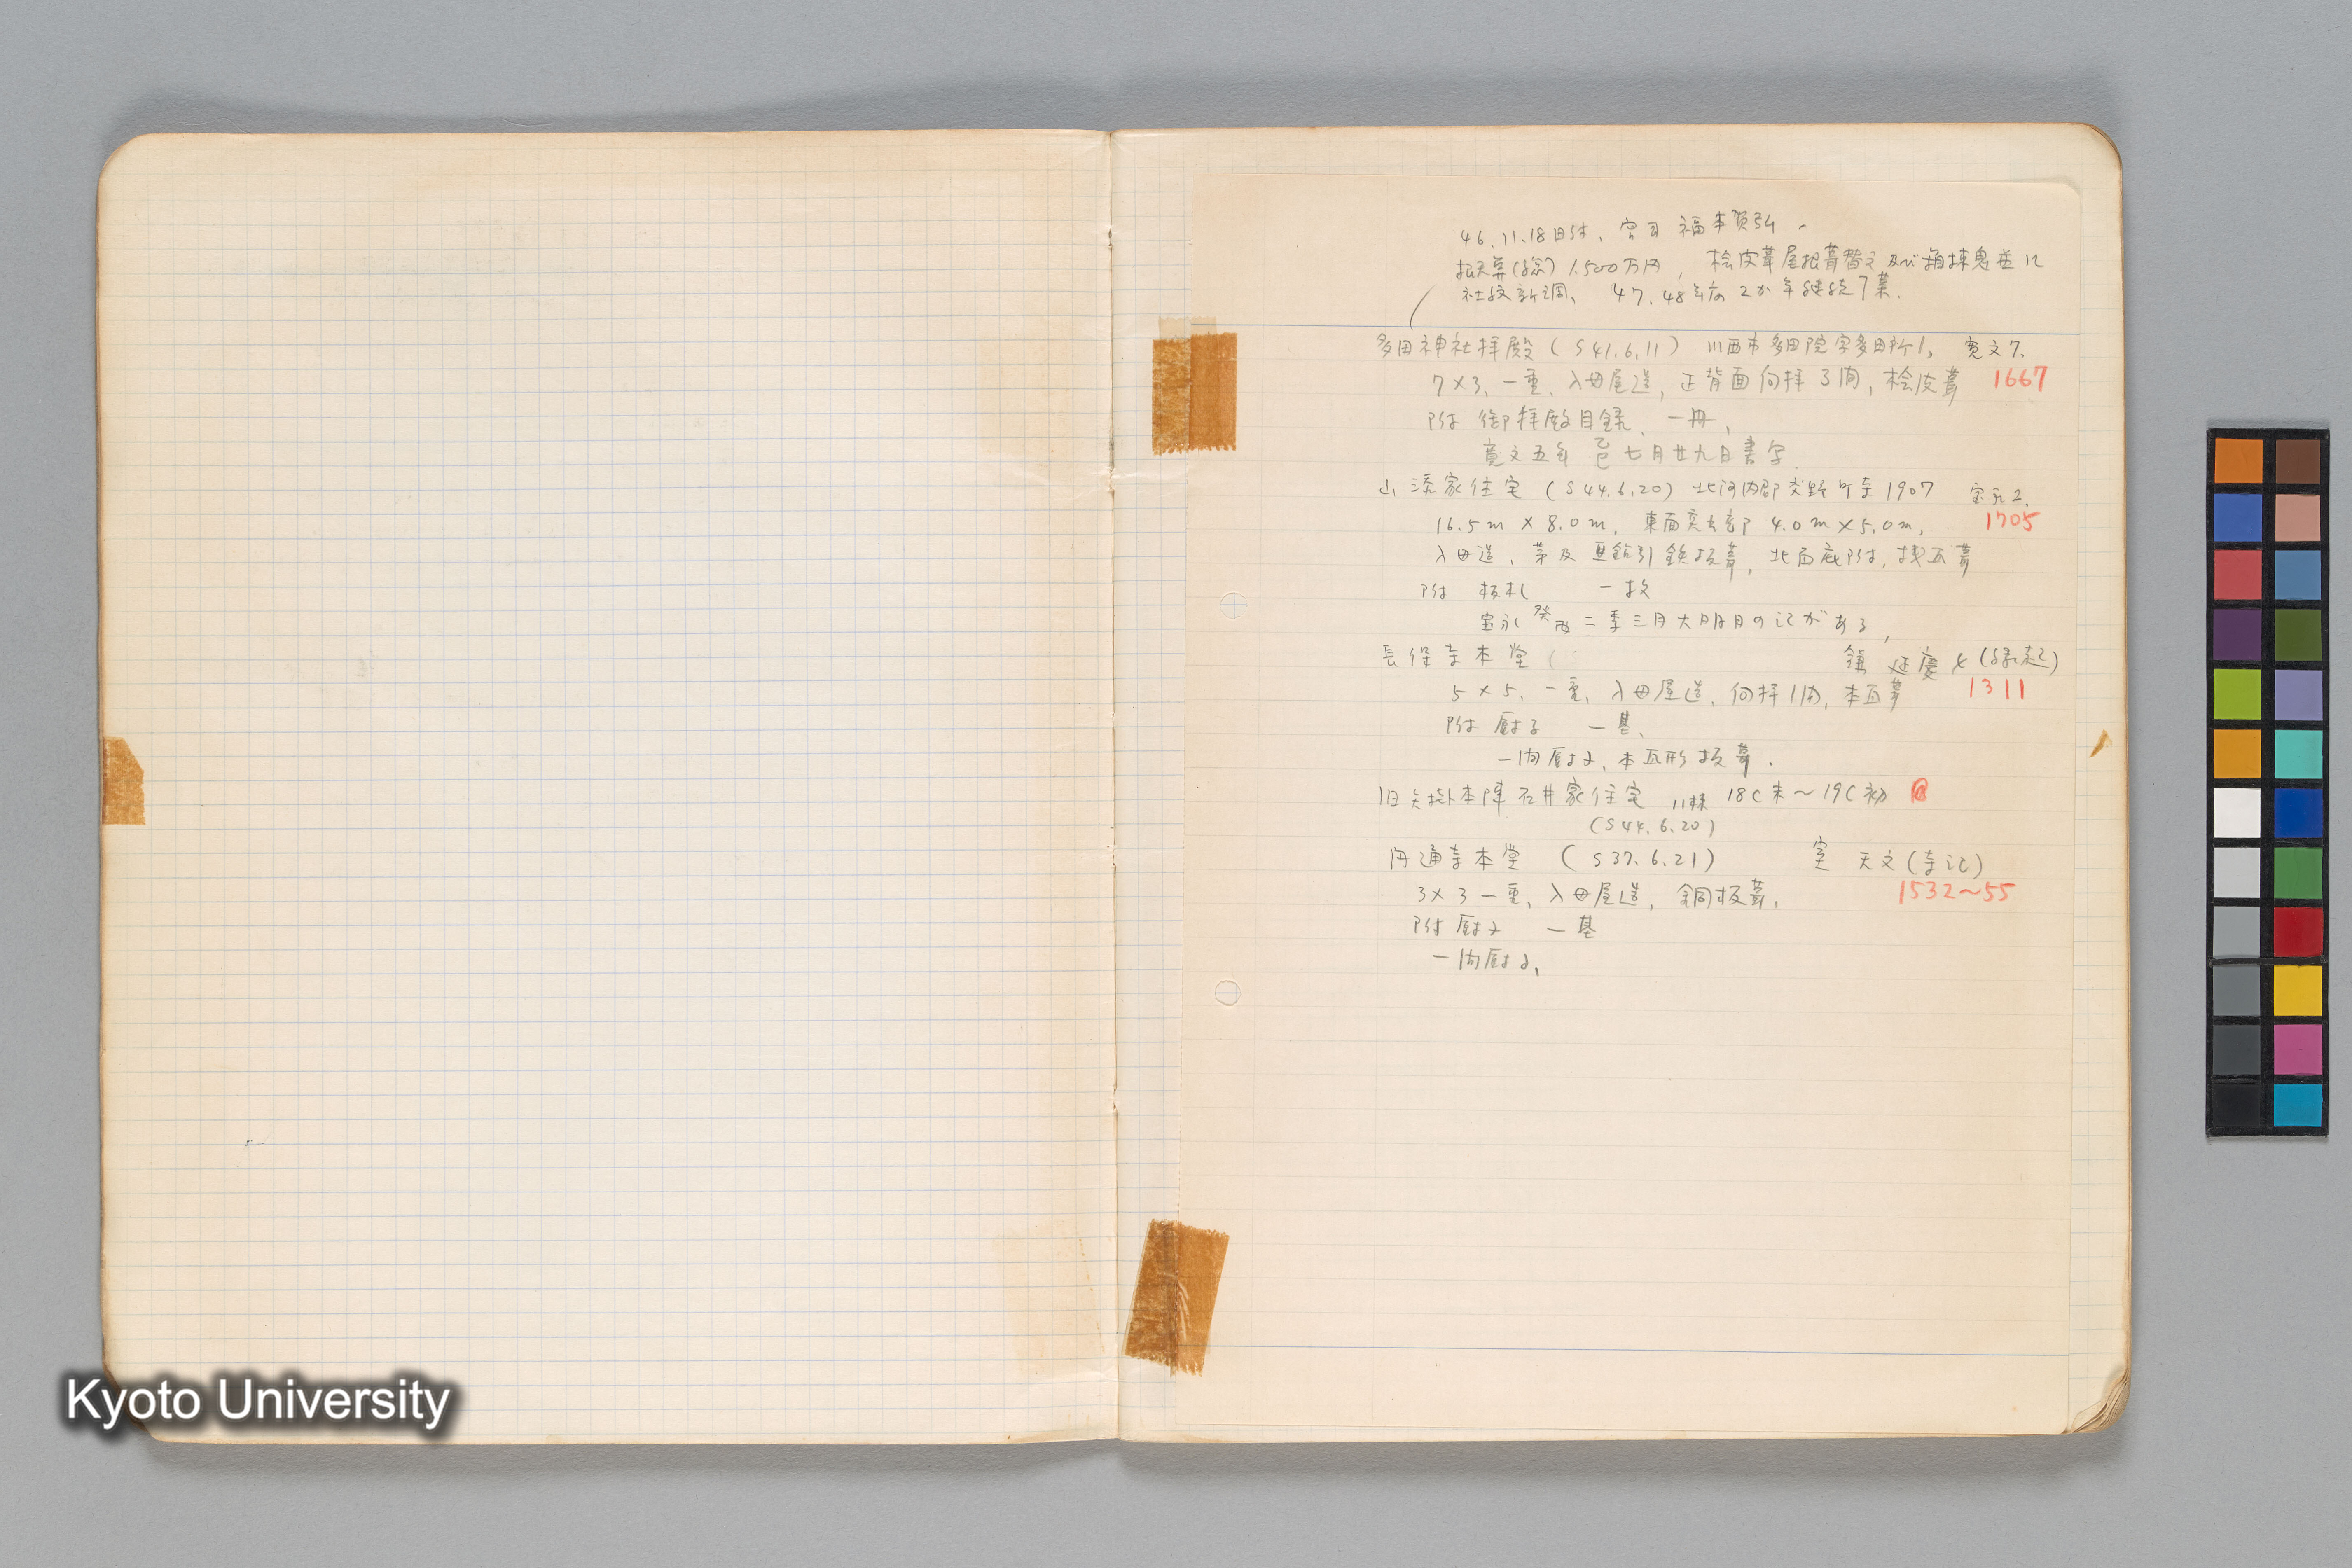 46.11.18日付、宮司 福本賀弘
概算(総) 1.500万円, 桧皮葺屋根葺替え及び箱棟鬼並に
社紋新調、 47.48年度 2か年継続事業.
多田神社拝殿 (S41.6.11) 川西市多田院字多田所1. 寛文7.
7×3, 一重, 入母屋造, 正背面向拝3間, 桧皮葺 1667
附 御拝殿目録、一冊,
寛文五年 乙巳 七月廿九日書写.
山添家住宅 (S44.6.20) 北河内郡交野町寺1907 宝永2.
16.5m × 8.0m, 東面突出部 4.0m×5.0m, 1705
入母造, 茅及亜鉛引鉄板葺, 北面庇附, 桟瓦葺
附 板札 一枚
宝永 二季三月大 日の記がある,
長保寺本堂 鎌 延慶4 (縁起)
5×5, 一重, 入母屋造, 向拝1間, 本瓦葺 1311
附 厨子 一基、
一間厨子, 本瓦形板葺.
旧矢掛本陣石井家住宅 11棟 18C末〜19C初
(S44.6.20)
円通寺本堂 (S37.6.21) 室 天文(寺記)
3×3 一重, 入母屋造, 銅板葺, 1532〜55
附 厨子 一基
一間厨子,
Kyoto University